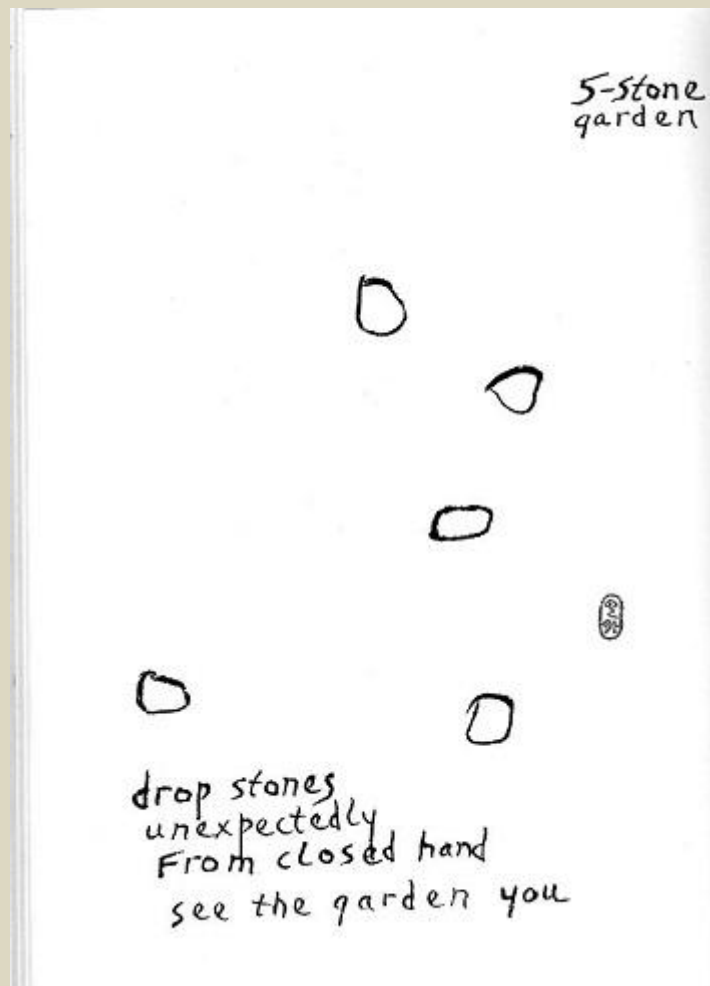 5-stone
garden
drop stones
unexpectedly
From closed hand
see the garden you